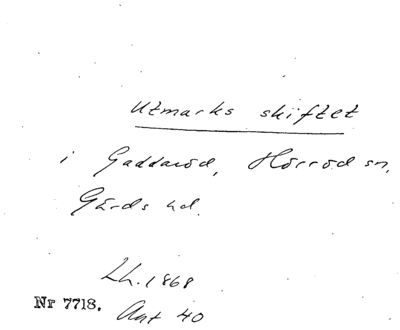 Utmarks skiftet
i Gaddaröd, Hörröd sn,
Gärds hd.
Lh. 1868
Nr 7718. Ant 40